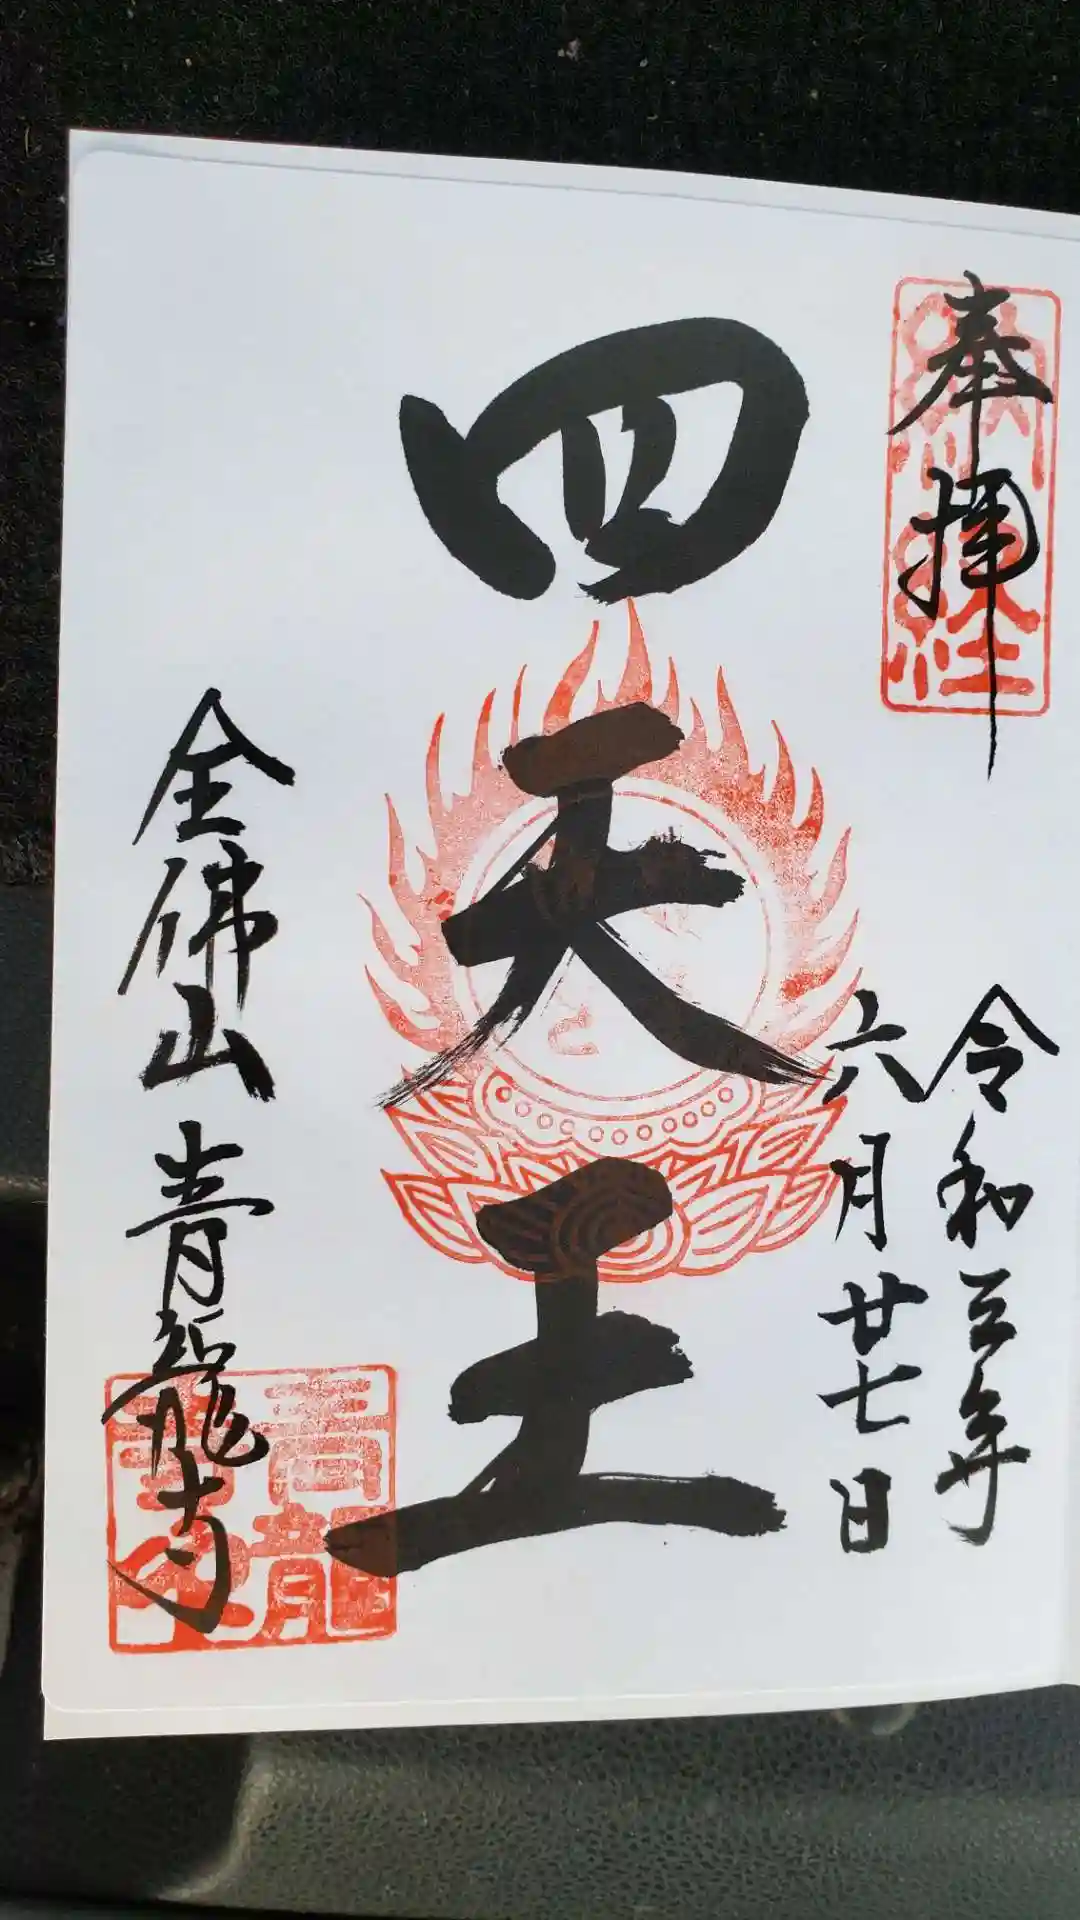 奉拝
令和三年
六月廿七日
四天王
金佛山 青龍寺
納経
青龍寺